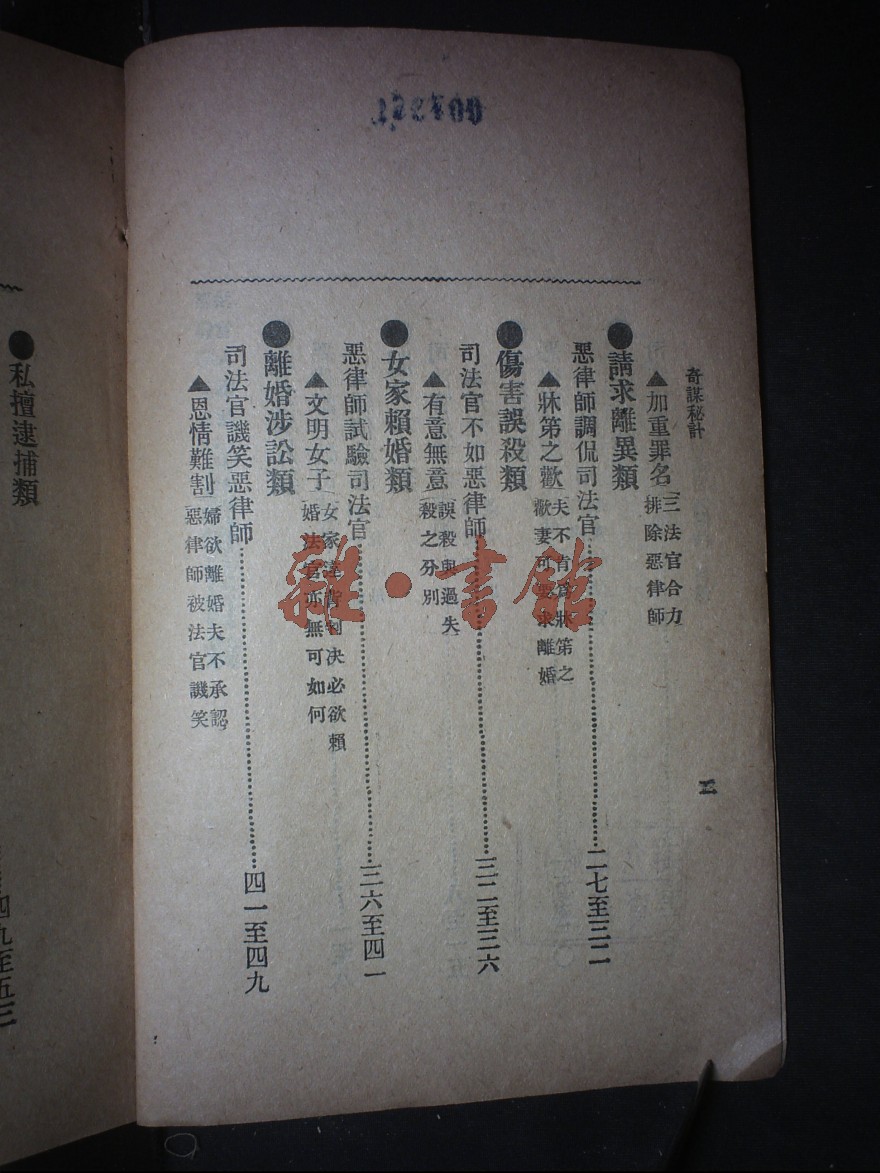 奇謀秘計
▲加重罪名
三法官合力
排除惡律師
●請求離異類
惡律師調侃司法官……二七至三二
▲牀第之歡
夫不肯爲牀第之
歡妻可要求離婚
●傷害誤殺類
司法官不如惡律師……三二至三六
▲有意無意
誤殺與過失
殺之分別
●女家賴婚類
惡律師試驗司法官……三六至四一
▲文明女子
女家違背判决必欲賴
婚法官亦無可如何
●離婚涉訟類
司法官譏笑惡律師……四一至四九
▲恩情難割
婦欲離婚夫不承認
惡律師被法官譏笑
●私擅逮捕類
四九至五三
雜·書館